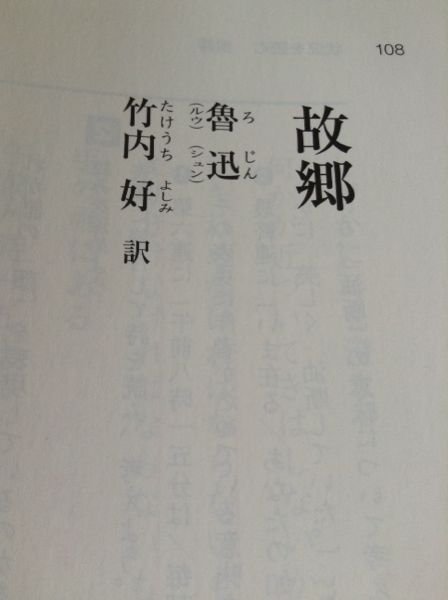 108
故郷
魯迅
ろじん
（ルウ）（シュン）
竹内好 訳
たけうち よしみ